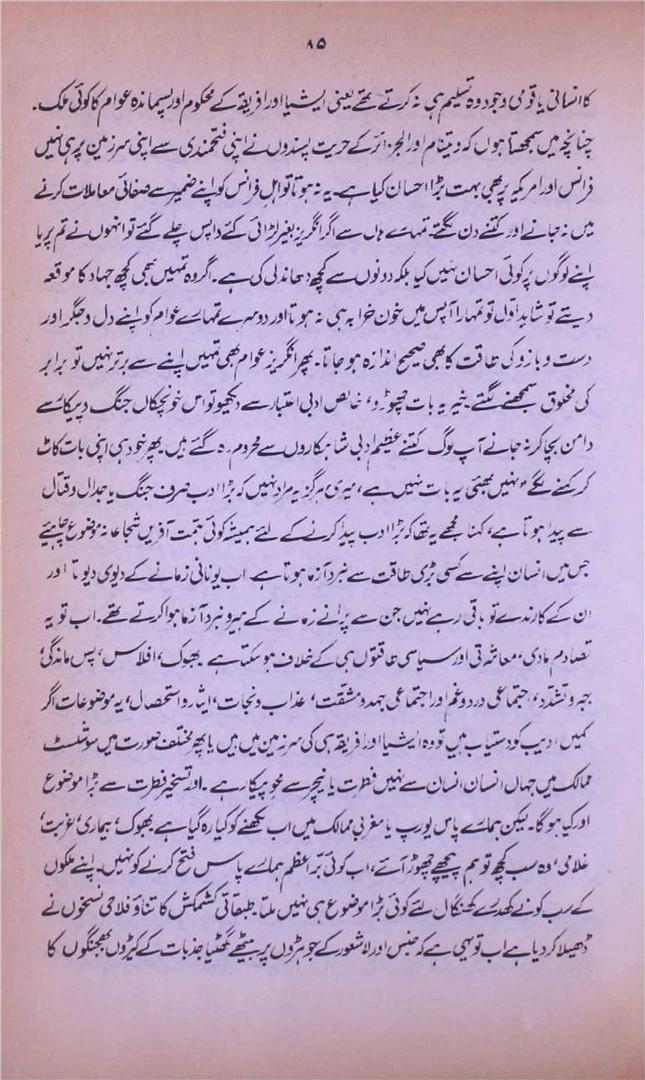 ۸۵
کا انسانی یا قومی وجود وہ تسلیم ہی نہ کرتے تھے یعنی ایشیا اور افریقہ کے محکوم اور پسماندہ عوام کا کوئی ملک۔
چنانچہ میں سمجھتا ہوں کہ ویتنام اور الجزائر کے حریت پسندوں نے اپنی فتحمندی سے اپنی سرزمین پر ہی نہیں
فرانس اور امریکہ پر بھی بہت بڑا احسان کیا ہے۔ یہ نہ ہوتا تو اہل فرانس کو اپنے ضمیر سے صفائی معاملات کرنے
میں نہ جانے اور کتنے دن لگتے۔ تمہارے ہاں سے اگر انگریز بغیر لڑائی کئے واپس چلے گئے تو انہوں نے تم پر یا
اپنے لوگوں پر کوئی احسان نہیں کیا بلکہ دونوں سے کچھ دھاندلی کی ہے۔ اگر وہ تمہیں بھی کچھ جہاد کا موقعہ
دیتے تو شاید اول تو تمہارا آپس میں خون خرابہ ہی نہ ہوتا اور دوسرے تمہارے عوام کو اپنے دل و جگر اور
دست و بازو کی طاقت کا بھی صحیح اندازہ ہو جاتا۔ پھر انگریز عوام بھی تمہیں اپنے سے برتر نہیں تو برابر
کی مخلوق سمجھنے لگتے۔ خیر یہ بات چھوڑو، خالص ادبی اعتبار سے دیکھو تو اس خونچکاں جنگ و پیکار سے
دامن بچا کر نہ جانے آپ لوگ کتنے عظیم ادبی شاہکاروں سے محروم رہ گئے ہیں پھر خود ہی اپنی بات کاٹ
کر کہنے لگے "نہیں بھئی یہ بات نہیں ہے، میری ہرگز یہ مراد نہیں کہ بڑا ادب صرف جنگ یا جدال و قتال
سے پیدا ہوتا ہے، کہنا مجھے یہ تھا کہ بڑا ادب پیدا کرنے کے لئے ہمیشہ کوئی ہمت آفریں شجاعانہ موضوع چاہئیے
جس میں انسان اپنے سے کسی بڑی طاقت سے نبرد آزما ہوتا ہے۔ اب یونانی زمانے کے دیوی دیوتا اور
ان کے کارندے تو باقی رہے نہیں جن سے پرانے زمانے کے ہیرو نبرد آزما ہوا کرتے تھے۔ اب تو یہ
تصادم مادی، معاشرتی اور سیاسی طاقتوں ہی کے خلاف ہو سکتا ہے۔ بھوک، افلاس، پس ماندگی،
جبر و تشدد، اجتماعی درد و غم اور اجتماعی جہد و مشقت، عذاب و نجات، ایثار و استحصال، یہ موضوعات اگر
کہیں ادیب کو دستیاب ہیں تو وہ ایشیا اور افریقہ ہی کی سرزمین میں ہیں یا پھر مختلف صورت میں سوشلسٹ
ممالک میں جہاں انسان انسان سے نہیں فطرت یا نیچر سے محو پیکار ہے۔ اور تسخیر فطرت سے بڑا موضوع
اور کیا ہوگا۔ لیکن ہمارے پاس یورپ یا مغربی ممالک میں اب لکھنے کو کیا رہ گیا ہے۔ بھوک، بیماری، غربت،
غلامی، وہ سب کچھ تو ہم پیچھے چھوڑ آئے، اب کوئی براعظم ہمارے پاس فتح کرنے کو نہیں۔ اپنے ملکوں
کے سب کونے کھدرے کھنگال لئے کوئی بڑا موضوع ہی نہیں ملتا۔ طبقاتی کشمکش کا تناؤ فلاحی نسخوں نے
ڈھیلا کر دیا ہے اب تو یہی ہے کہ جنس اور لاشعور کے جوہڑوں پر بیٹھے گھٹیا جذبات کے کیڑوں بھجنگوں کا